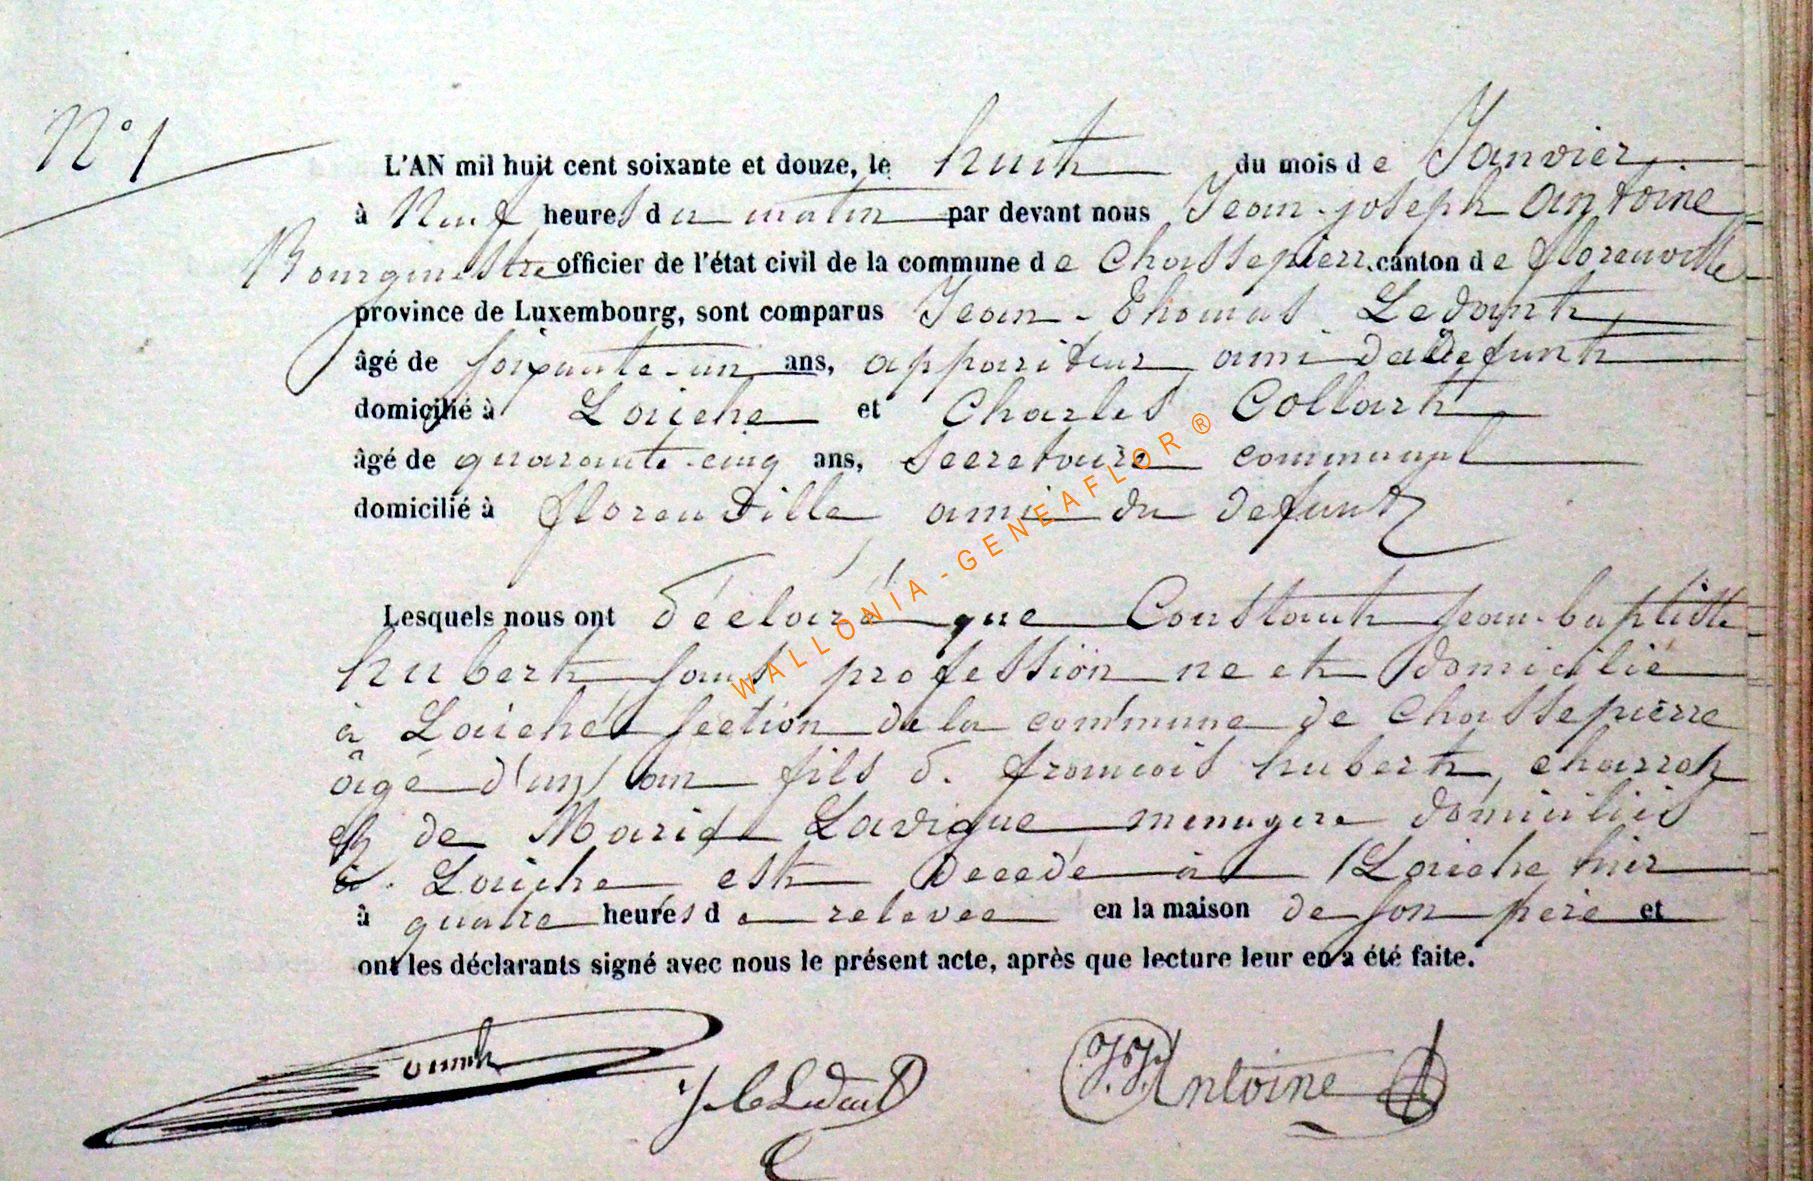 N° 1
L'AN mil huit cent soixante et douze, le huit du mois de Janvier
à Neuf heures du matin par devant nous Jean-joseph antoine
Bourgmestre officier de l'état civil de la commune de Chassepierre canton de florenville
province de Luxembourg, sont comparus Jean-Thomas Ledant
âgé de soixante-un ans, appariteur ami du defunt
domicilié à Laiche et Charles Collart
âgé de quarante-cinq ans, secretaire communal
domicilié à florenville ami du defunt
Lesquels nous ont déclaré que Constant jean-baptiste
hubert sans profession ne et domicilié
à Laiche section de la commune de Chassepierre
âgé d'un an fils d. francois hubert, charron
et de Marie Lavigne menagere domiciliés
à Laiche est decedé à Laiche hier
à quatre heures de relevee en la maison de son père et
ont les déclarants signé avec nous le présent acte, après que lecture leur en a été faite.
J. Antoine
WALLONIA-GENEAFLOR®